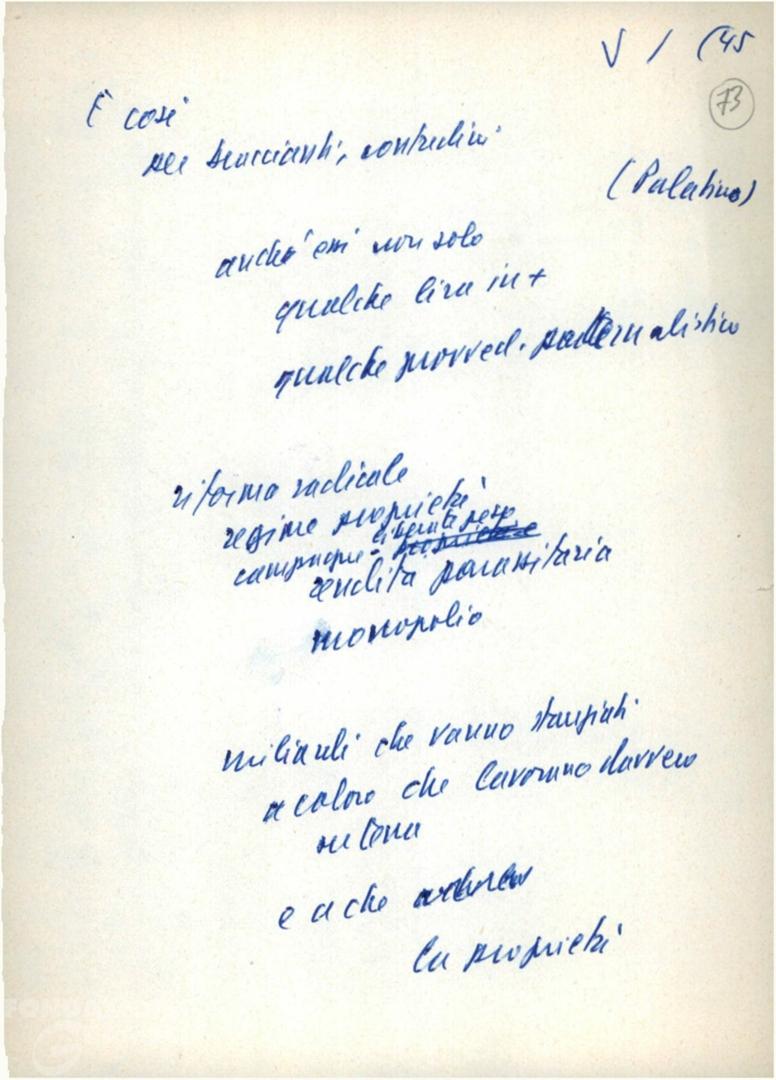 V / (45
73
E così
per braccianti, contadini
(Palatino)
anch'essi non solo
qualche lira in +
qualche provved. paternalistico
riforma radicale
regime proprietà
campagne - liberate peso
rendita parassitaria
monopolio
miliardi che vanno stanziati
a coloro che lavorano davvero
su terra
e a che
la proprietà
FONDAZIONE
G